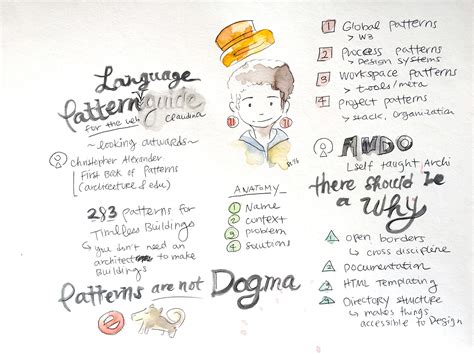 Language
Pattern guide
for the web
Claudina
~ looking outwards ~
Christopher Alexander
First Book of Patterns
(architecture & edu)
283 patterns for
Timeless Buildings
↳ you don't need an
architect to make
Buildings
Patterns are not Dogma
ANATOMY
1 Name
2 context
3 problem
4 solutions
1 Global patterns
> W3
2 Process patterns
> Design systems
3 Workspace patterns
> tools/meta
4 Project patterns
> stack, Organization
Self taught Archi
there should be
a Why
1 open borders
↳ cross discipline
2 Documentation
3 HTML Templating
4 Directory structure
↳ makes things
accessible to Design